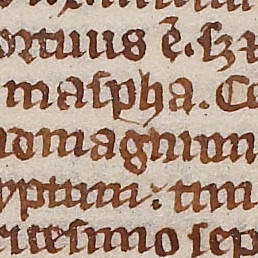 ortuus ē. Sz
maspha. Co
no magnum
yptum: tim
cesimo sep